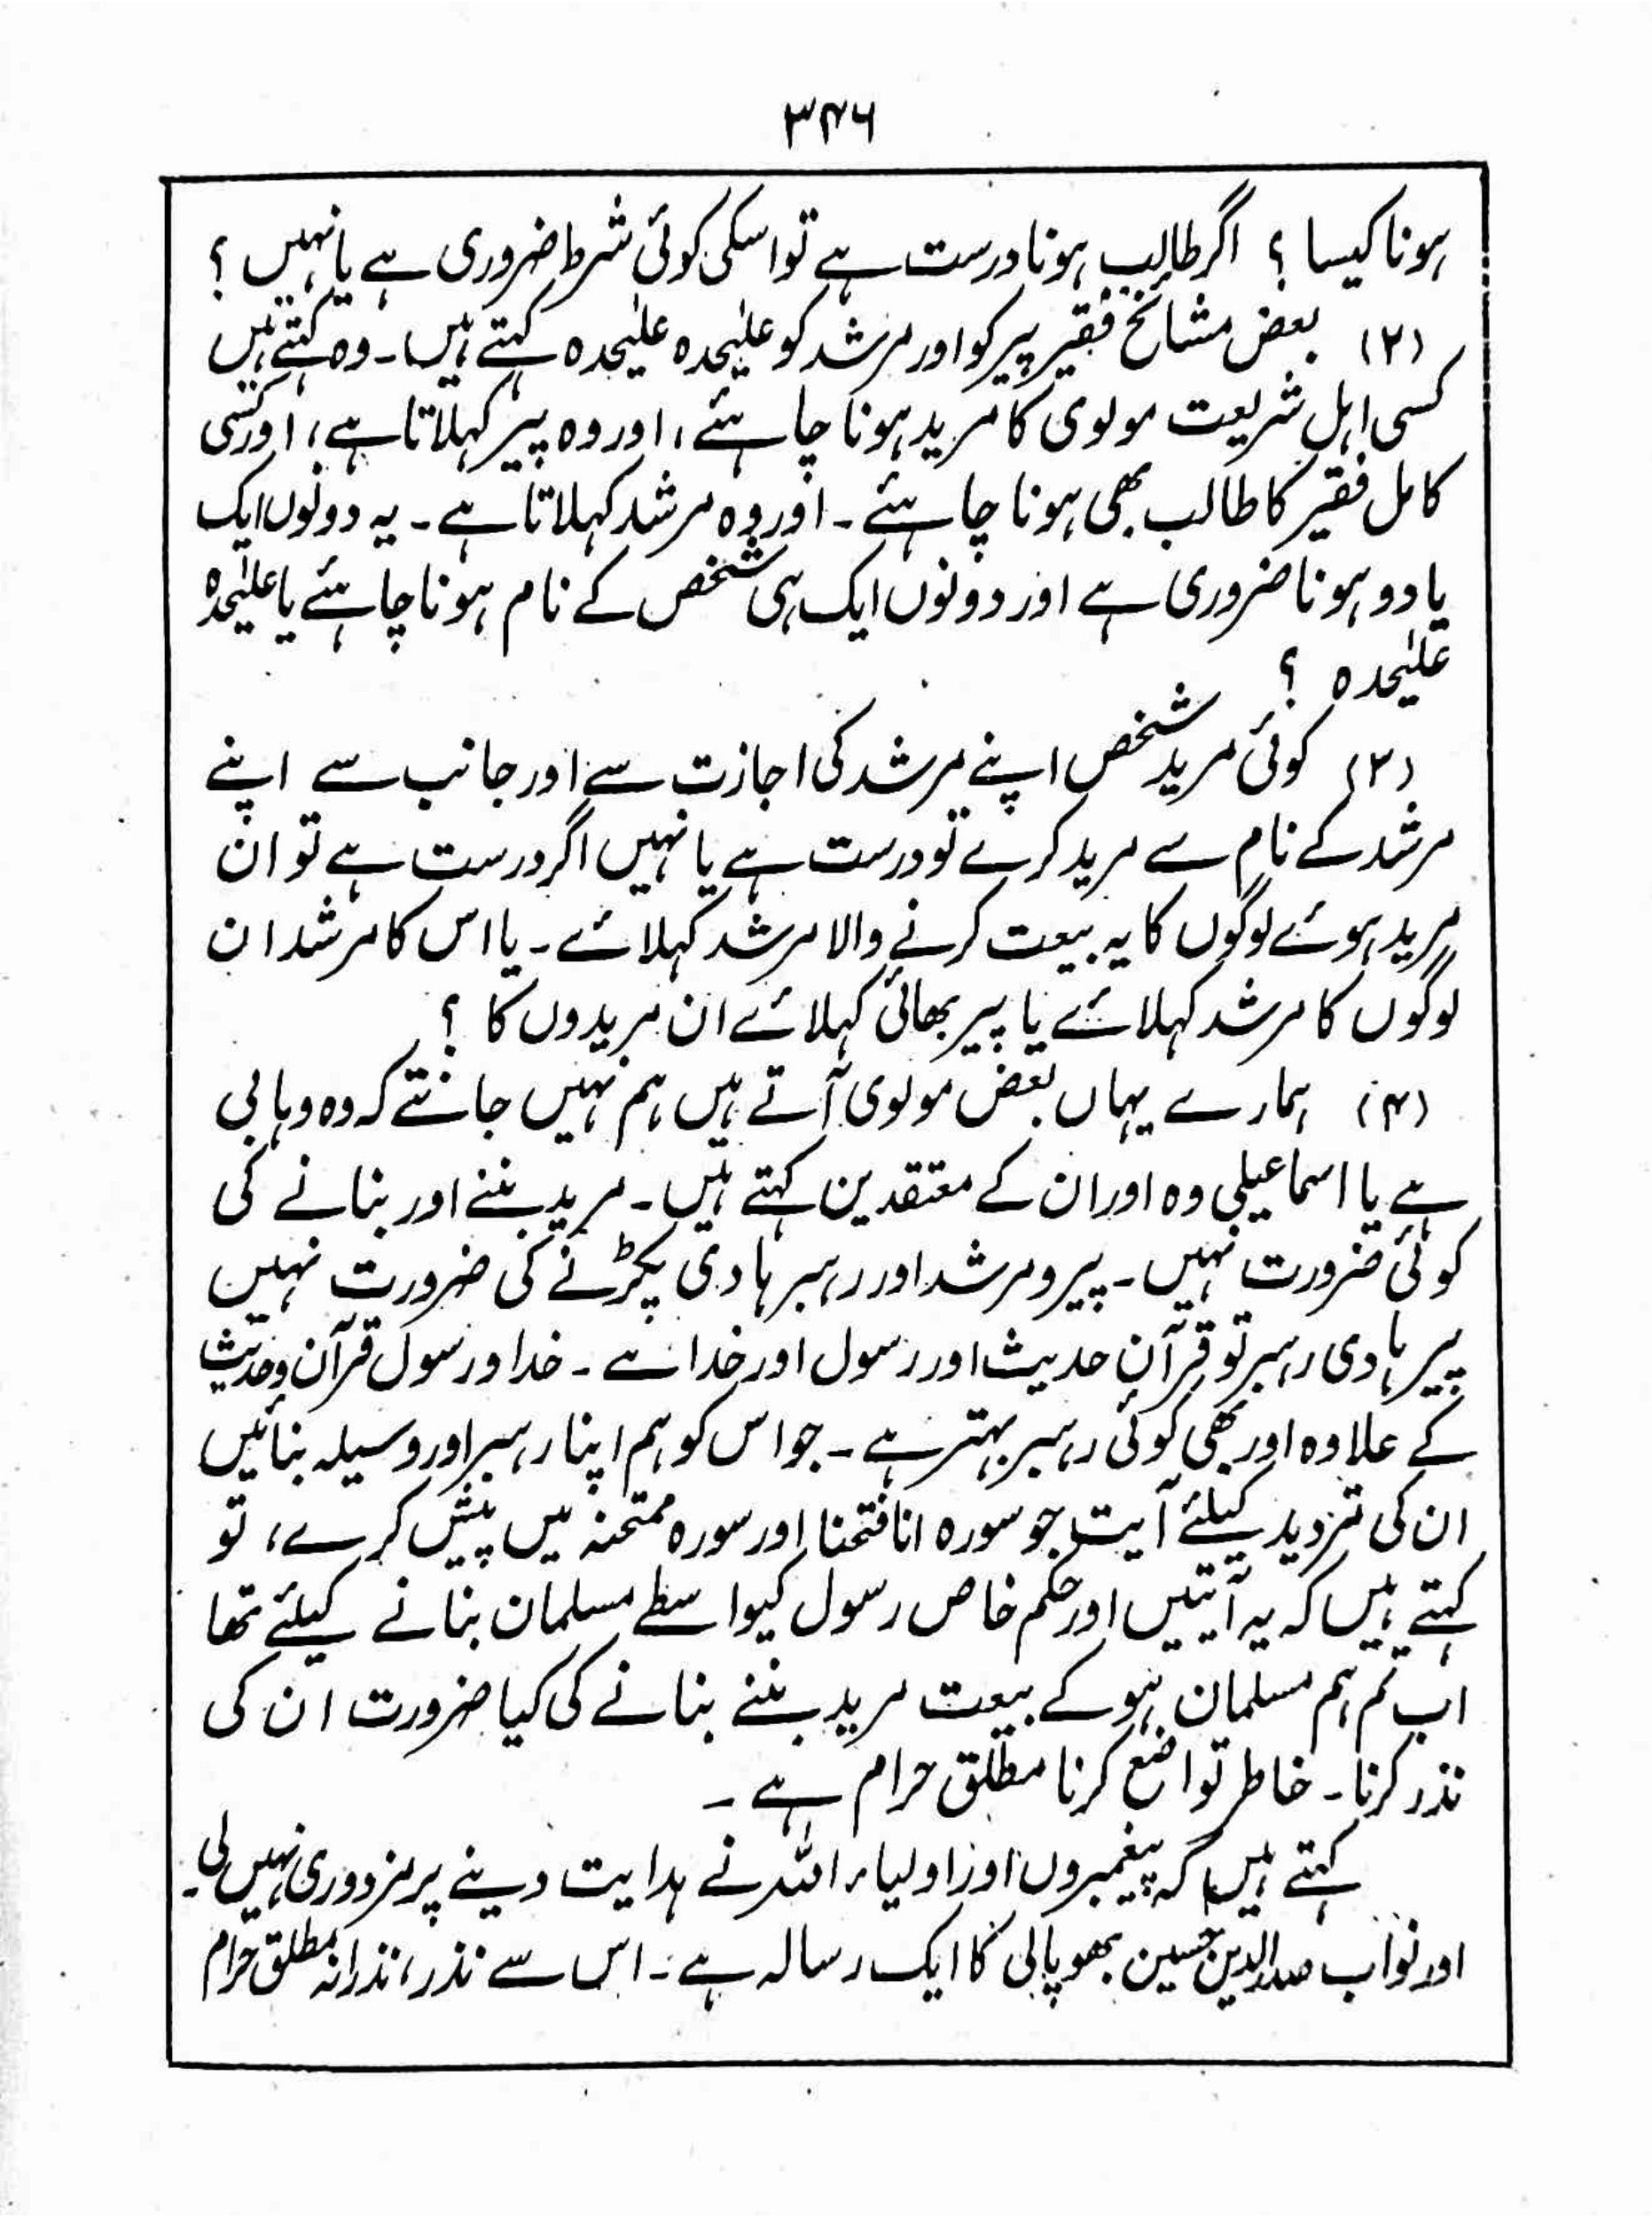 ۳۴۶
ہونا کیسا ؟ اگر طالب ہونا درست ہے تو اسکی کوئی شرط ضروری ہے یا نہیں ؟
(۲) بعض مشائخ فقیر پیر کو اور مرشد کو علیٰحدہ علیٰحدہ کہتے ہیں ۔ وہ کہتے ہیں
کسی اہل شریعت مولوی کا مرید ہونا چاہئے ، اور وہ پیر کہلاتا ہے ، اور کسی
کامل فقیر کا طالب بھی ہونا چاہئے ۔ اور وہ مرشد کہلاتا ہے ۔ یہ دونوں ایک
یا دو ہونا ضروری ہے اور دونوں ایک ہی شخص کے نام ہونا چاہئے یا علیٰحدہ
علیٰحدہ ؟
(۳) کوئی مرید شخص اپنے مرشد کی اجازت سے اور جانب سے اپنے
مرشد کے نام سے مرید کرے تو درست ہے یا نہیں اگر درست ہے تو ان
مرید ہوئے لوگوں کا یہ بیعت کرنے والا مرشد کہلائے ۔ یا اس کا مرشد ان
لوگوں کا مرشد کہلائے یا پیر بھائی کہلائے ان مریدوں کا ؟
(۴) ہمارے یہاں بعض مولوی آتے ہیں ہم نہیں جانتے کہ وہ وہابی
ہے یا اسماعیلی وہ اور ان کے معتقدین کہتے ہیں ۔ مرید بننے اور بنانے کی
کوئی ضرورت نہیں ۔ پیر و مرشد اور رہبر ہادی پکڑنے کی ضرورت نہیں
پیر ہادی رہبر تو قرآن حدیث اور رسول اور خدا ہے ۔ خدا و رسول قرآن و حدیث
کے علاوہ اور بھی کوئی رہبر بہتر ہے ۔ جو اس کو ہم اپنا رہبر اور وسیلہ بنائیں
ان کی تردید کیلئے آیت جو سورہ انا فتحنا اور سورہ ممتحنہ میں پیش کرے ، تو
کہتے ہیں کہ یہ آیتیں اور حکم خاص رسول کیواسطے مسلمان بنانے کیلئے تھا
اب تم ہم مسلمان ہو کے بیعت مرید بننے بنانے کی کیا ضرورت ان کی
نذر کرنا ۔ خاطر تواضع کرنا مطلق حرام ہے ۔
کہتے ہیں کہ پیغمبروں اور اولیاء اللہ نے ہدایت دینے پر مزدوری نہیں لی ۔
اور نواب صدر الدین حسین بھوپالی کا ایک رسالہ ہے ۔ اس سے نذر ، نذرانہ مطلق حرام